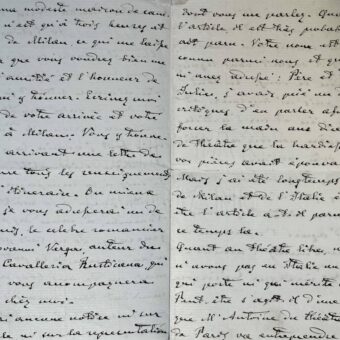 une modeste maison de cam
n'est qu'à trois heures et
de Milan ce qui me laisse
que vous voudrez bien me
l'amitié et l'honneur de
m'y Ecrivez moi
de votre arrivée et votre
à Milan. Vous y trouve
arrivant une lettre de
tous les renseignements
itinéraire. Ou mieux
je vous adresserai un de
le celebre romancier
iovanni Verga auteur des
Cavalleria Rusticana, qui
vous accompagnera
chez moi.
ai aucune notice ni sur
ni sur la representation
dont vous me parlez. Quan
l'article il est très probab
ait paru. Votre nom est
connu parmi nous et qu
m'avez adressé: Père et
j'avais prié un d
critiques d'en parler afin
forcer la main aux dire
de théâtre que la hardiesse
vos pièces avait épouva
Mais j'ai été longtemps
de Milan et de l'Italie e
être l'article a-t-il paru
ce temps la.
Quant au théâtre libre, n
n'avons pas en Italie un
qui porte ni qui mérite c
Peut-être s'agit-il d'une
que M. Antoine du théâtr
de Paris va entreprendre